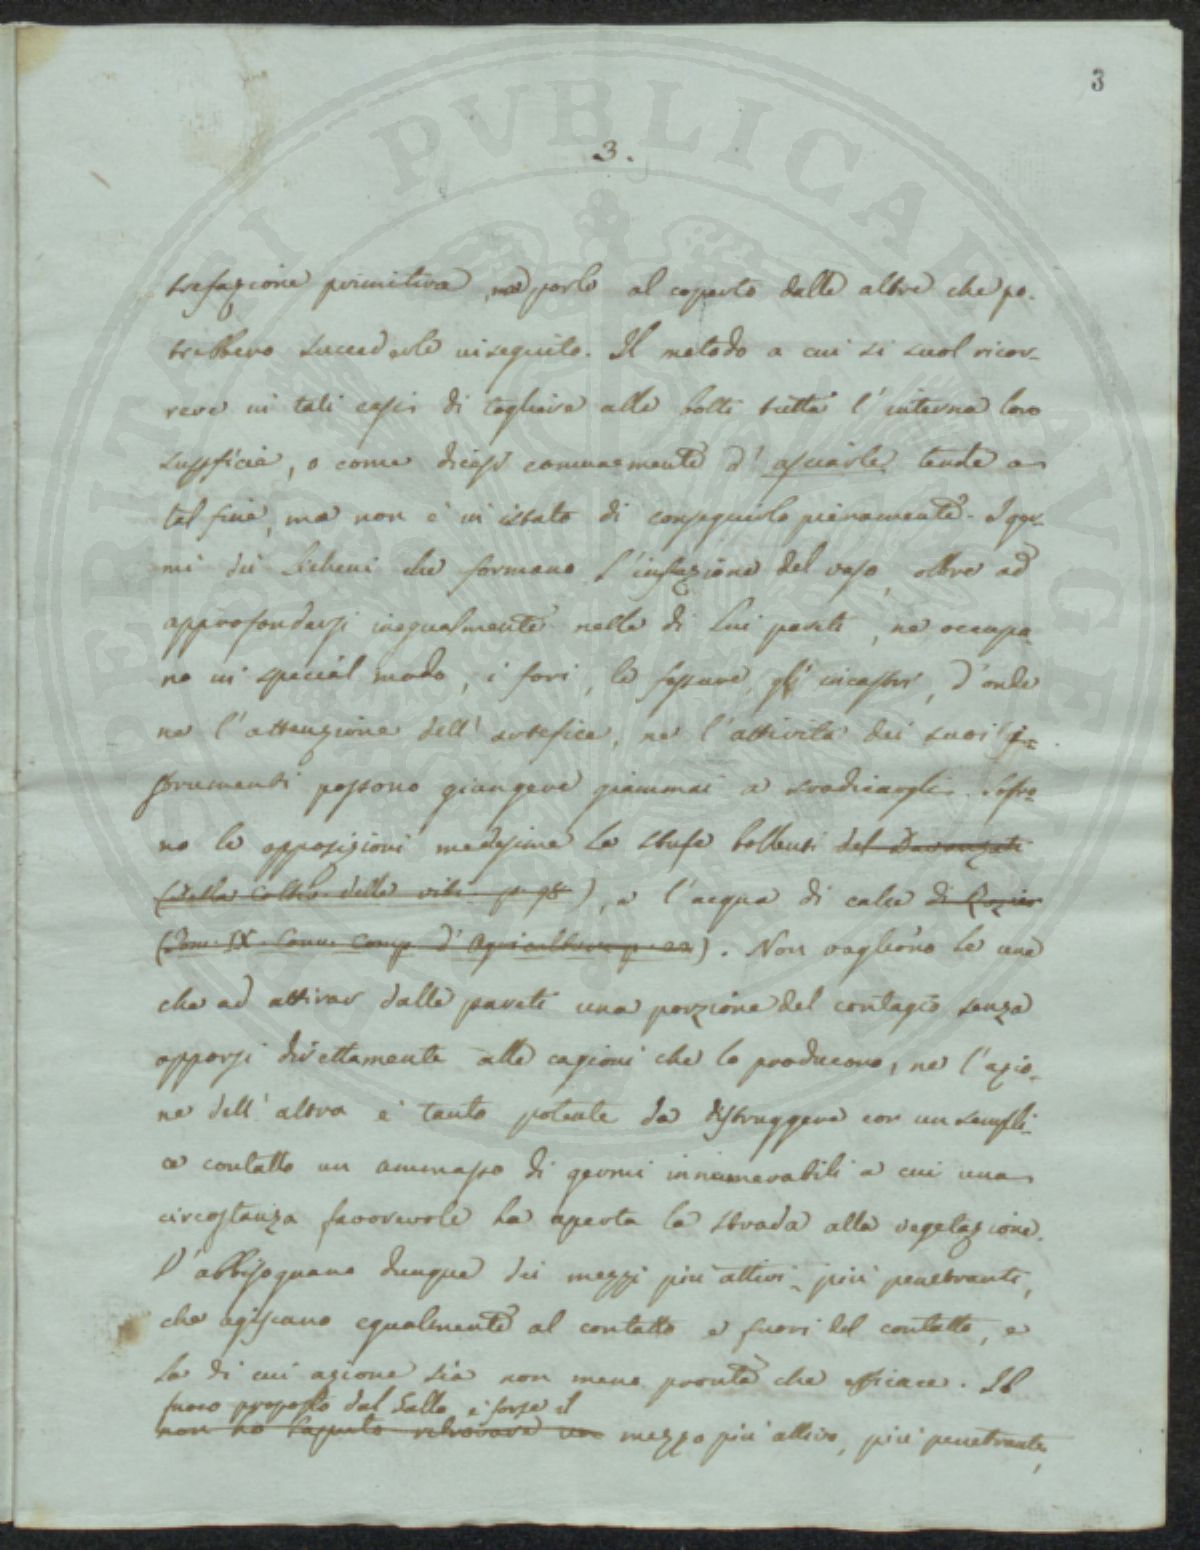 3
3.
trefazione primitiva, nè porle al coperto dalle altre che po-
trebbero succederle in seguito. Il metodo a cui si suol ricor-
rere in tali casi di togliere alle botti tutta l'interna loro
superficie, o come dicesi comunemente d'asciarle, tende a
tal fine, ma non è in istato di conseguirlo pienamente. I ger-
mi dei licheni che formano l'infezione del vaso, oltre ad
approfondarsi inegualmente nelle di lui pareti, ne occupa-
no in special modo, i fori, le fessure, gli incastri, d'onde
nè l'attenzione dell'artefice, nè l'attività dei suoi i-
strumenti possono giungere giammai a sradicargli. Soffro-
no le opposizioni medesime le stufe bollenti del Davanzati
(Della Coltiv. delle viti. p. 98), e l'acqua di calce di Rozier
(Tom. IX. Cours Comp. d'Agriculture p. 22). Non vagliono le une
che ad attirar dalle pareti una porzione del contagio senza
opporsi direttamente alle cagioni che lo producono, nè l'azio-
ne dell'altra è tanto potente da distruggere con un sempli-
ce contatto un ammasso di germi innumerabili a cui una
circostanza favorevole ha aperta la strada alla vegetazione.
V'abbisognano dunque dei mezzi più attivi, più penetranti,
che agiscano egualmente al contatto e fuori del contatto, e
la di cui azione sia non meno pronta che efficace. Il
fuoco proposto dal Gallo è forse il
non ho saputo ritrovare un mezzo più attivo, più penetrante,